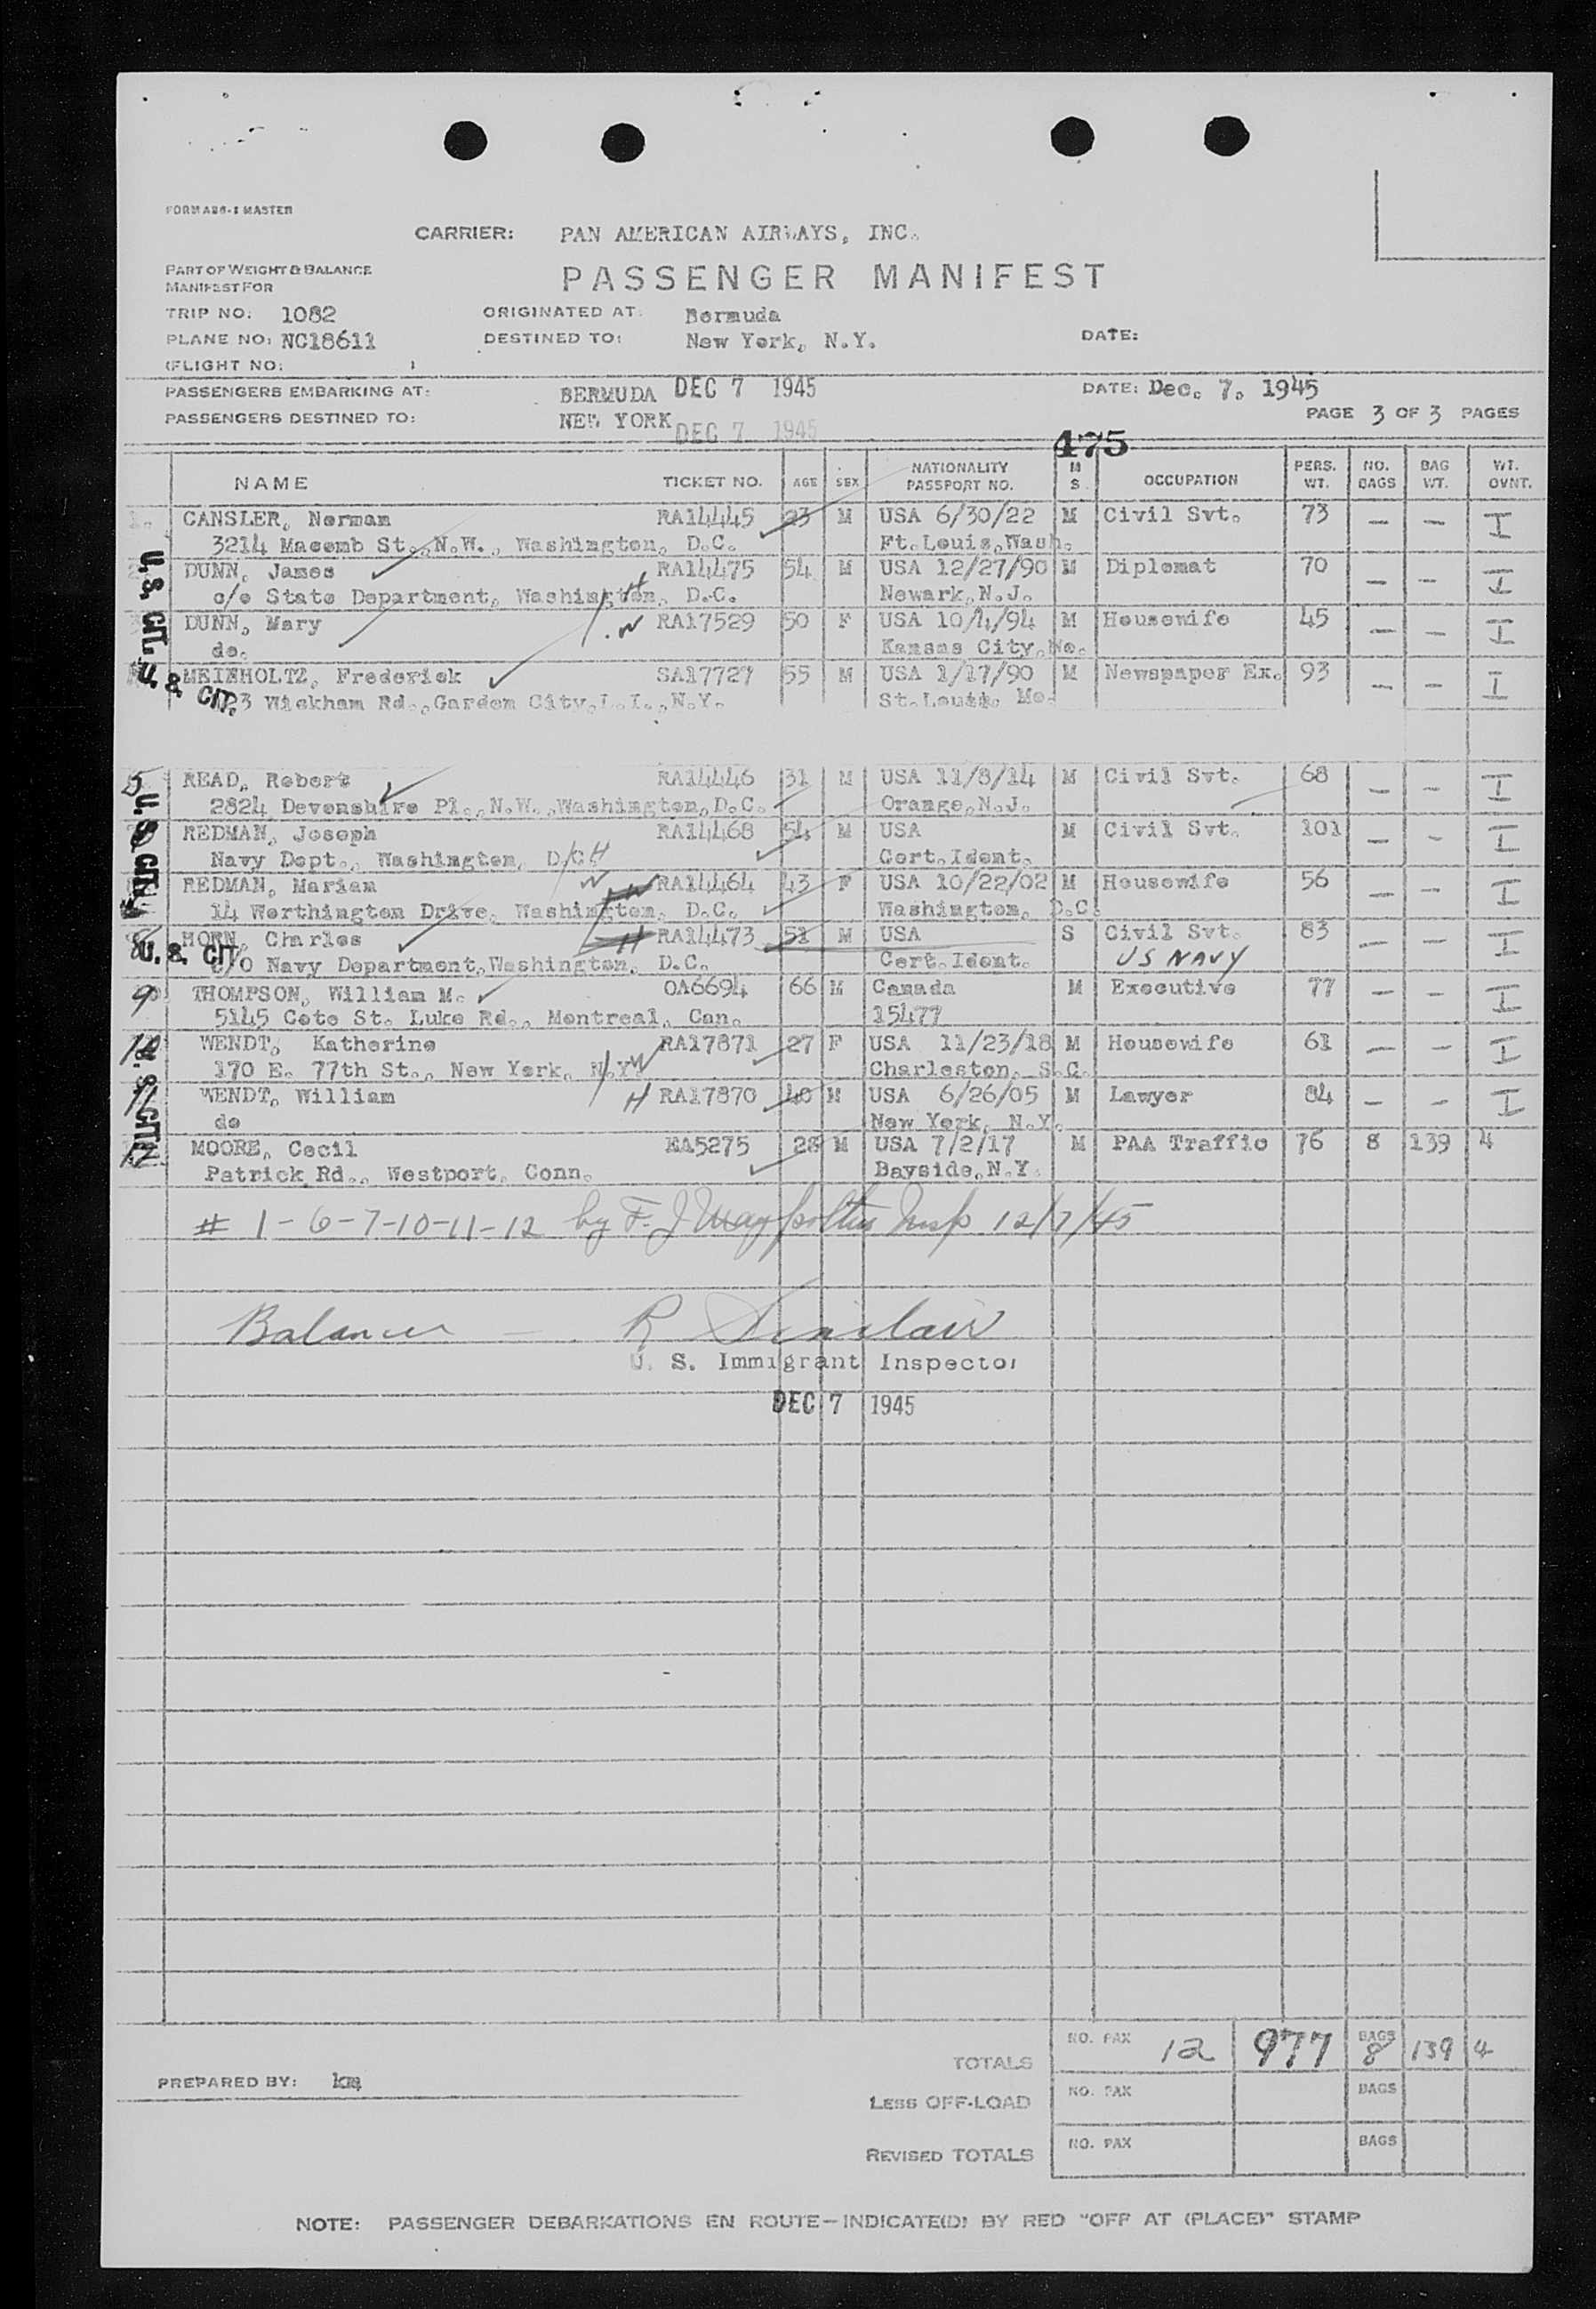 FORM A26-1 MASTER
CARRIER: PAN AMERICAN AIRWAYS, INC.
PART OF WEIGHT & BALANCE
MANIFEST FOR
PASSENGER MANIFEST
TRIP NO: 1082 ORIGINATED AT: Bermuda
PLANE NO: NC18611 DESTINED TO: New York, N.Y. DATE:
(FLIGHT NO: )
PASSENGERS EMBARKING AT: BERMUDA DEC 7 1945 DATE: Dec. 7. 1945
PASSENGERS DESTINED TO: NEW YORK DEC 7 1945 PAGE 3 OF 3 PAGES
475
NAME TICKET NO. AGE SEX NATIONALITY PASSPORT NO. M S OCCUPATION PERS. WT. NO. BAGS BAG WT. WT. OVNT.
CANSLER, Norman RA14445 23 M USA 6/30/22 M Civil Svt. 73 – – I
3214 Macomb St.,N.W., Washington, D.C. Ft.Louis,Wash.
U.S. CIT.
DUNN, James RA14475 54 M USA 12/27/90 M Diplomat 70 – – I
c/o State Department, Washington, D.C. H Newark,N.J.
DUNN, Mary W RA17529 50 F USA 10/4/94 M Housewife 45 – – I
do. Kansas City,Mo.
U.S. CIT.
MEINHOLTZ, Frederick SA17727 55 M USA 1/17/90 M Newspaper Ex. 93 – – I
3 Wickham Rd.,Garden City,L.I.,N.Y. St.Louis, Mo.
5 READ, Robert RA14446 31 M USA 11/8/14 M Civil Svt. 68 – – I
2824 Devonshire Pl.,N.W.,Washington,D.C. Orange,N.J.
U.S. CIT.
REDMAN, Joseph RA14468 54 M USA M Civil Svt. 101 – – I
Navy Dept., Washington, D.C. H Cert.Ident.
REDMAN, Mariam W RA14464 43 F USA 10/22/02 M Housewife 56 – – I
14 Worthington Drive, Washington, D.C. Washington, D.C.
8 U.S. CIT.
HORN, Charles H RA14473 51 M USA S Civil Svt. 83 – – I
c/o Navy Department,Washington, D.C. Cert.Ident. US NAVY
9 THOMPSON, William M. OA6694 66 M Canada M Executive 77 – – I
5145 Cote St. Luke Rd., Montreal, Can. 15477
10 WENDT, Katherine RA17871 27 F USA 11/23/18 M Housewife 61 – – I
170 E. 77th St., New York, N.Y. W Charleston, S.C.
11 WENDT, William H RA17870 40 M USA 6/26/05 M Lawyer 84 – – I
do New York, N.Y.
12 MOORE, Cecil EA5275 28 M USA 7/2/17 M PAA Traffic 76 8 139 4
Patrick Rd., Westport, Conn. Bayside,N.Y.
# 1-6-7-10-11-12 by F. J. Insp 12/7/45
Balance – R Sinclair
U. S. Immigrant Inspector
DEC 7 1945
TOTALS NO. PAX 12 977 BAGS 8 139 4
PREPARED BY: km
LESS OFF-LOAD NO. PAX BAGS
REVISED TOTALS NO. PAX BAGS
NOTE: PASSENGER DEBARKATIONS EN ROUTE—INDICATE(D) BY RED "OFF AT (PLACE)" STAMP